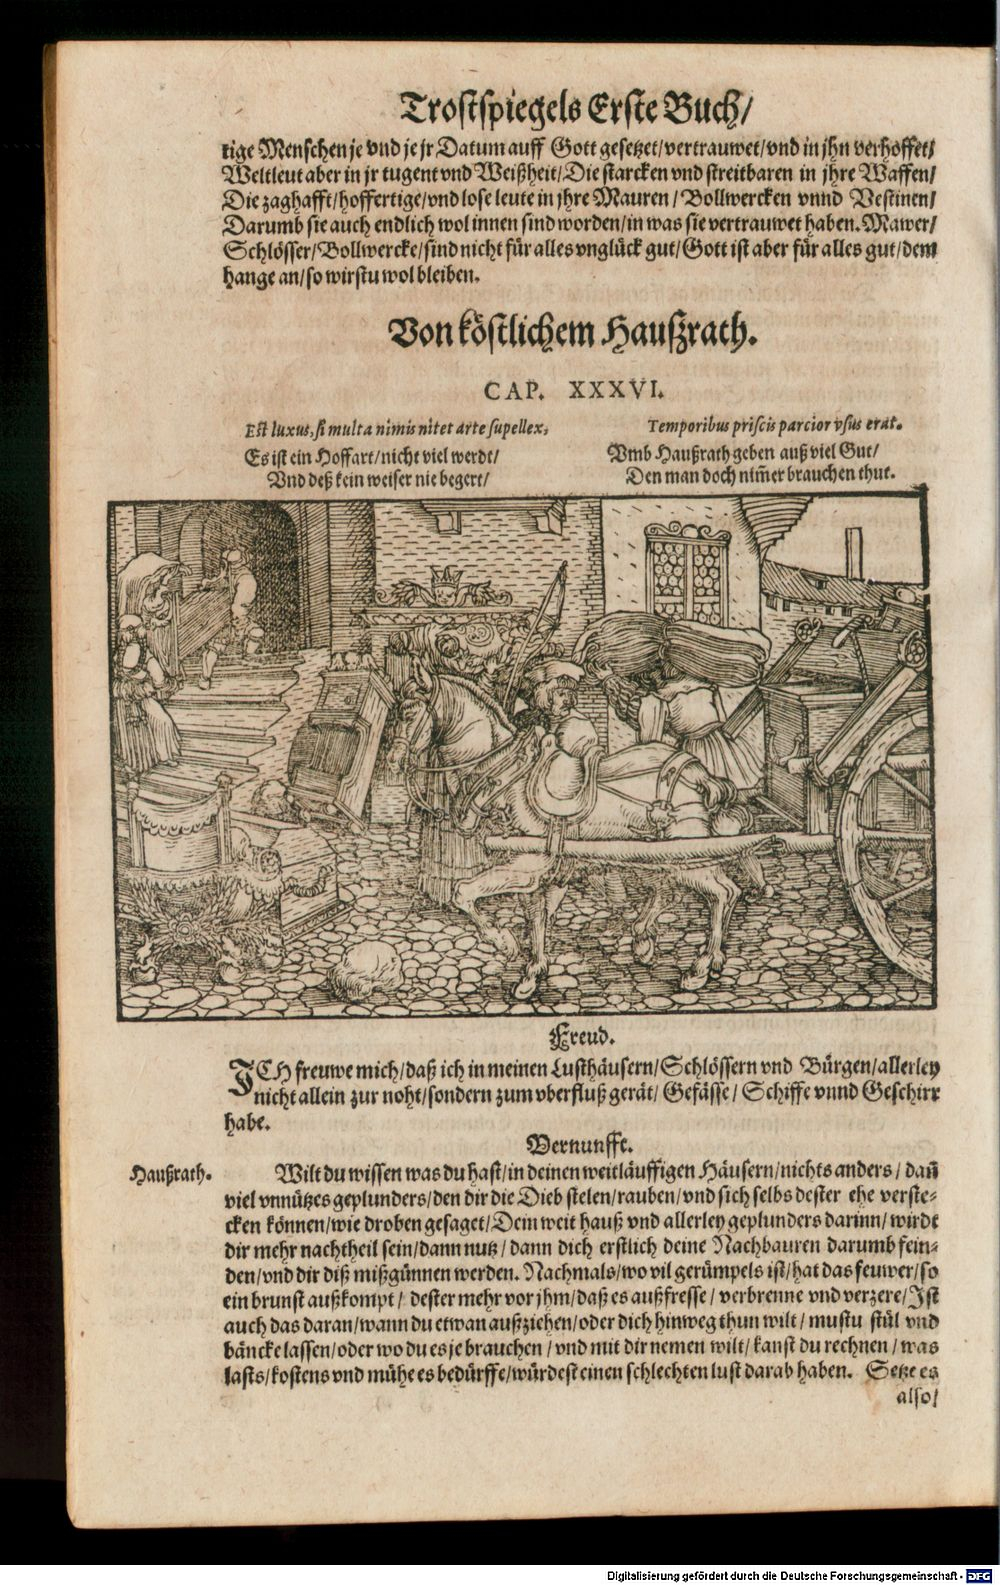 Trostspiegels Erste Buch/
tige Menschen je vnd je jr Datum auff Gott gesetzet/vertrauwet/vnd in jhn verhoffet/
Weltleut aber in jr tugent vnd Weißheit/Die starcken vnd streitbaren in jhre Waffen/
Die zaghafft/hoffertige/vnd lose leute in jhre Mauren/Bollwercken vnnd Vestinen/
Darumb sie auch endlich wol innen sind worden/in was sie vertrauwet haben. Mawer/
Schlösser/Bollwercke/sind nicht für alles vnglück gut/Gott ist aber für alles gut/dem
hange an/so wirstu wol bleiben.
Von köstlichem Haußrath.
CAP. XXXVI.
Est luxus, si multa nimis nitet arte supellex,
Es ist ein Hoffart/nicht viel werdt/
Vnd deß kein weiser nie begert/
Temporibus priscis parcior vsus erat.
Vmb Haußrath geben auß viel Gut/
Den man doch nim̃er brauchen thut.
Freud.
ICH freuwe mich/daß ich in meinen Lusthäusern/Schlössern vnd Bürgen/allerley
nicht allein zur noht/sondern zum vberfluß gerät/Gefässe/Schiffe vnnd Geschirr
habe.
Vernunfft.
Haußrath.
Wilt du wissen was du hast/in deinen weitläuffigen Häusern/nichts anders/dañ
viel vnnützes geplunders/den dir die Dieb stelen/rauben/vnd sich selbs dester ehe verste-
cken können/wie droben gesaget/Dein weit hauß vnd allerley geplunders darinn/wirdt
dir mehr nachtheil sein/dann nutz/dann dich erstlich deine Nachbauren darumb fein-
den/vnd dir diß mißgünnen werden. Nachmals/wo vil gerümpels ist/hat das feuwer/so
ein brunst außkompt/dester mehr vor jhm/daß es außfresse/verbrenne vnd verzere/Ist
auch das daran/wann du etwan außziehen/oder dich hinweg thun wilt/mustu stül vnd
bäncke lassen/oder wo du es je brauchen/vnd mit dir nemen wilt/kanst du rechnen/was
lasts/kostens vnd mühe es bedürffe/würdest einen schlechten lust darab haben. Setze es
also/
Digitalisierung gefördert durch die Deutsche Forschungsgemeinschaft - DFG